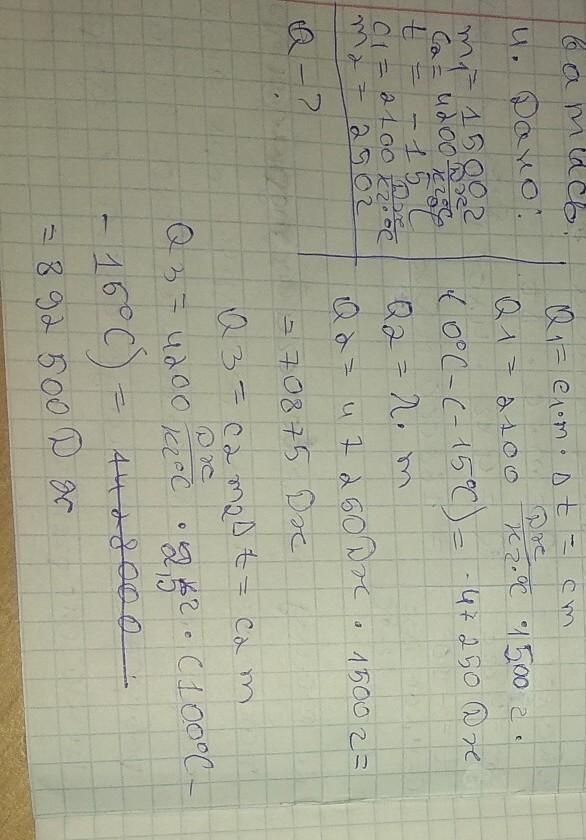 4. Дано:
m1 = 1500г
c2 = 4200 Дж/кг·°C
t = -15°C
c1 = 2100 Дж/кг·°C
m2 = 250г
Q - ?
Q1 = c1·m·Δt = cm
Q1 = 2100 Дж/кг·°C · 1500 г·
(0°C - (-15°C) = 47250 Дж
Q2 = λ·m
Q2 = 47250 Дж · 1500 г =
= 70875 Дж
Q3 = c2 m2 Δt = c2 m
Q3 = 4200 Дж/кг°C · 2,5 кг · (100°C -
- 15°C) =
= 892 500 Дж